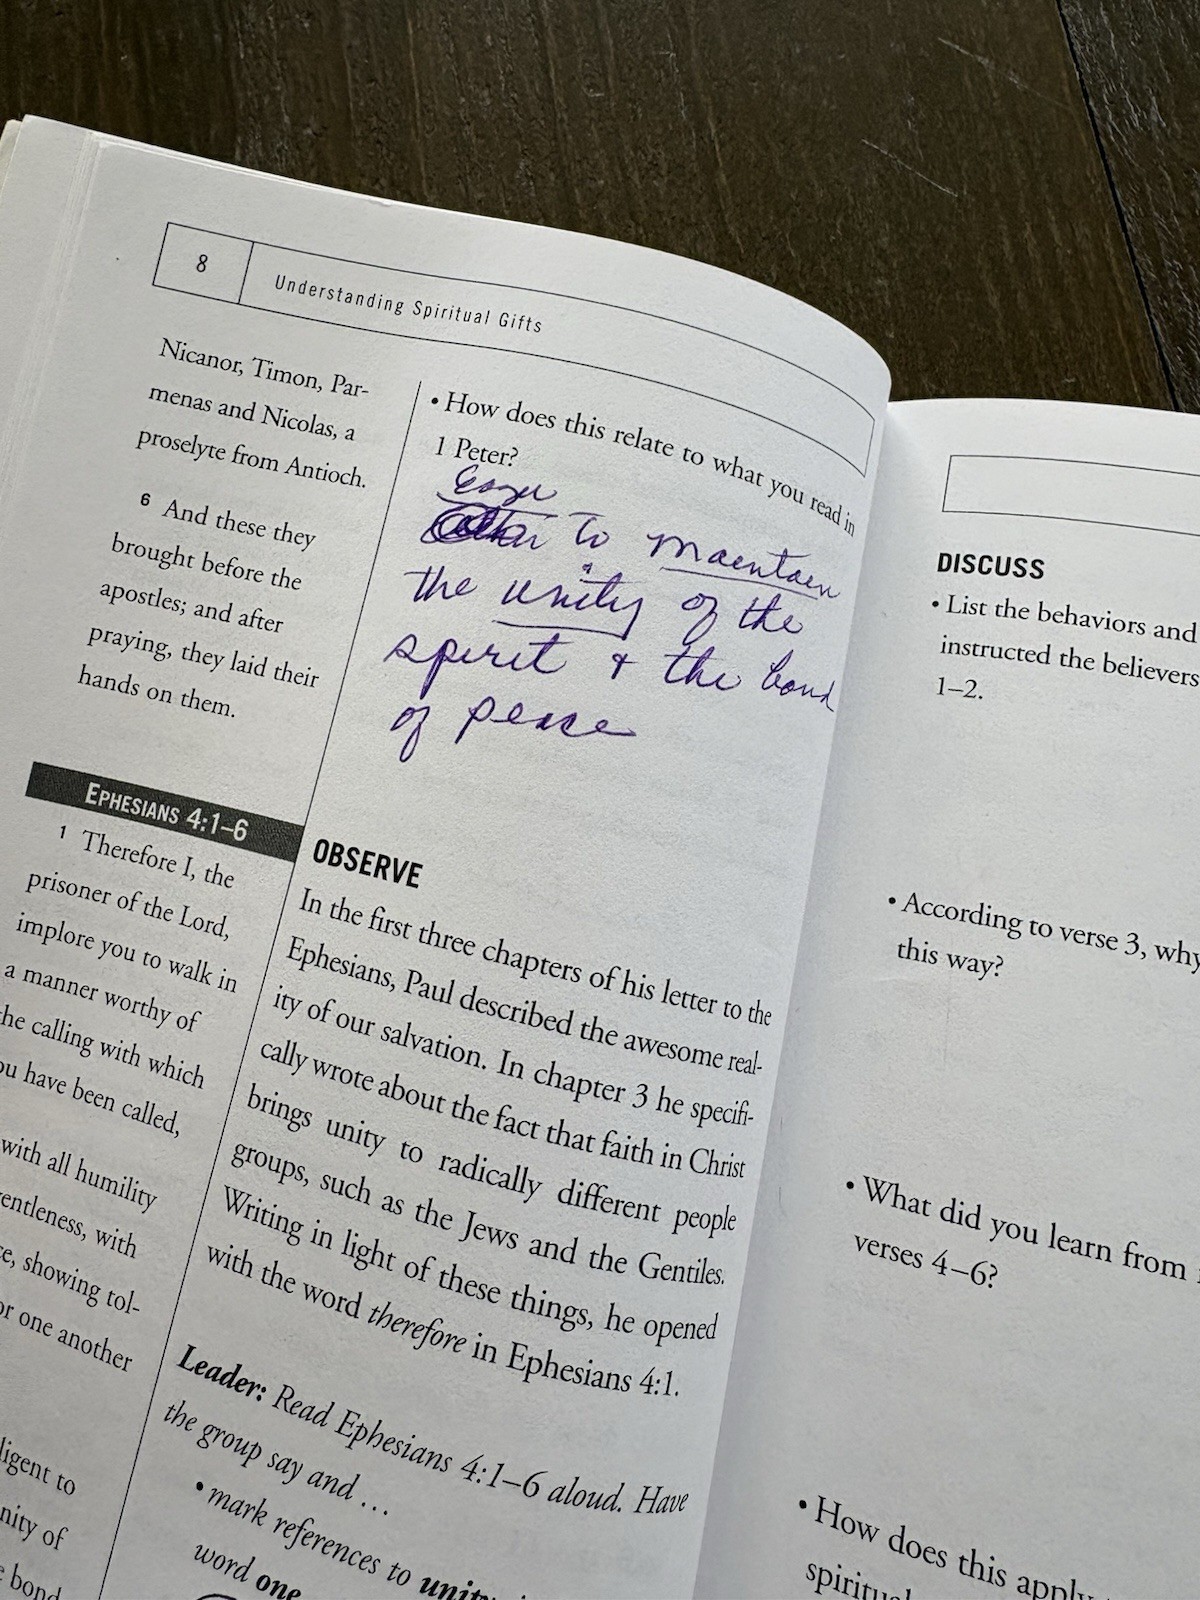 8
Understanding Spiritual Gifts
Nicanor, Timon, Par-
menas and Nicolas, a
proselyte from Antioch.
6 And these they
brought before the
apostles; and after
praying, they laid their
hands on them.
EPHESIANS 4:1–6
1 Therefore I, the
prisoner of the Lord,
implore you to walk in
a manner worthy of
the calling with which
ou have been called,
with all humility
entleness, with
ce, showing tol-
or one another
ligent to
nity of
e bond
• How does this relate to what you read in
1 Peter?
Eager
to maentaen
the unity of the
spirit & the bond
of peace
OBSERVE
In the first three chapters of his letter to the
Ephesians, Paul described the awesome real-
ity of our salvation. In chapter 3 he specifi-
cally wrote about the fact that faith in Christ
brings unity to radically different people
groups, such as the Jews and the Gentiles.
Writing in light of these things, he opened
with the word therefore in Ephesians 4:1.
Leader: Read Ephesians 4:1–6 aloud. Have
the group say and …
• mark references to unity
word one
DISCUSS
• List the behaviors and
instructed the believers
1–2.
• According to verse 3, why
this way?
• What did you learn from
verses 4–6?
• How does this apply
spiritual